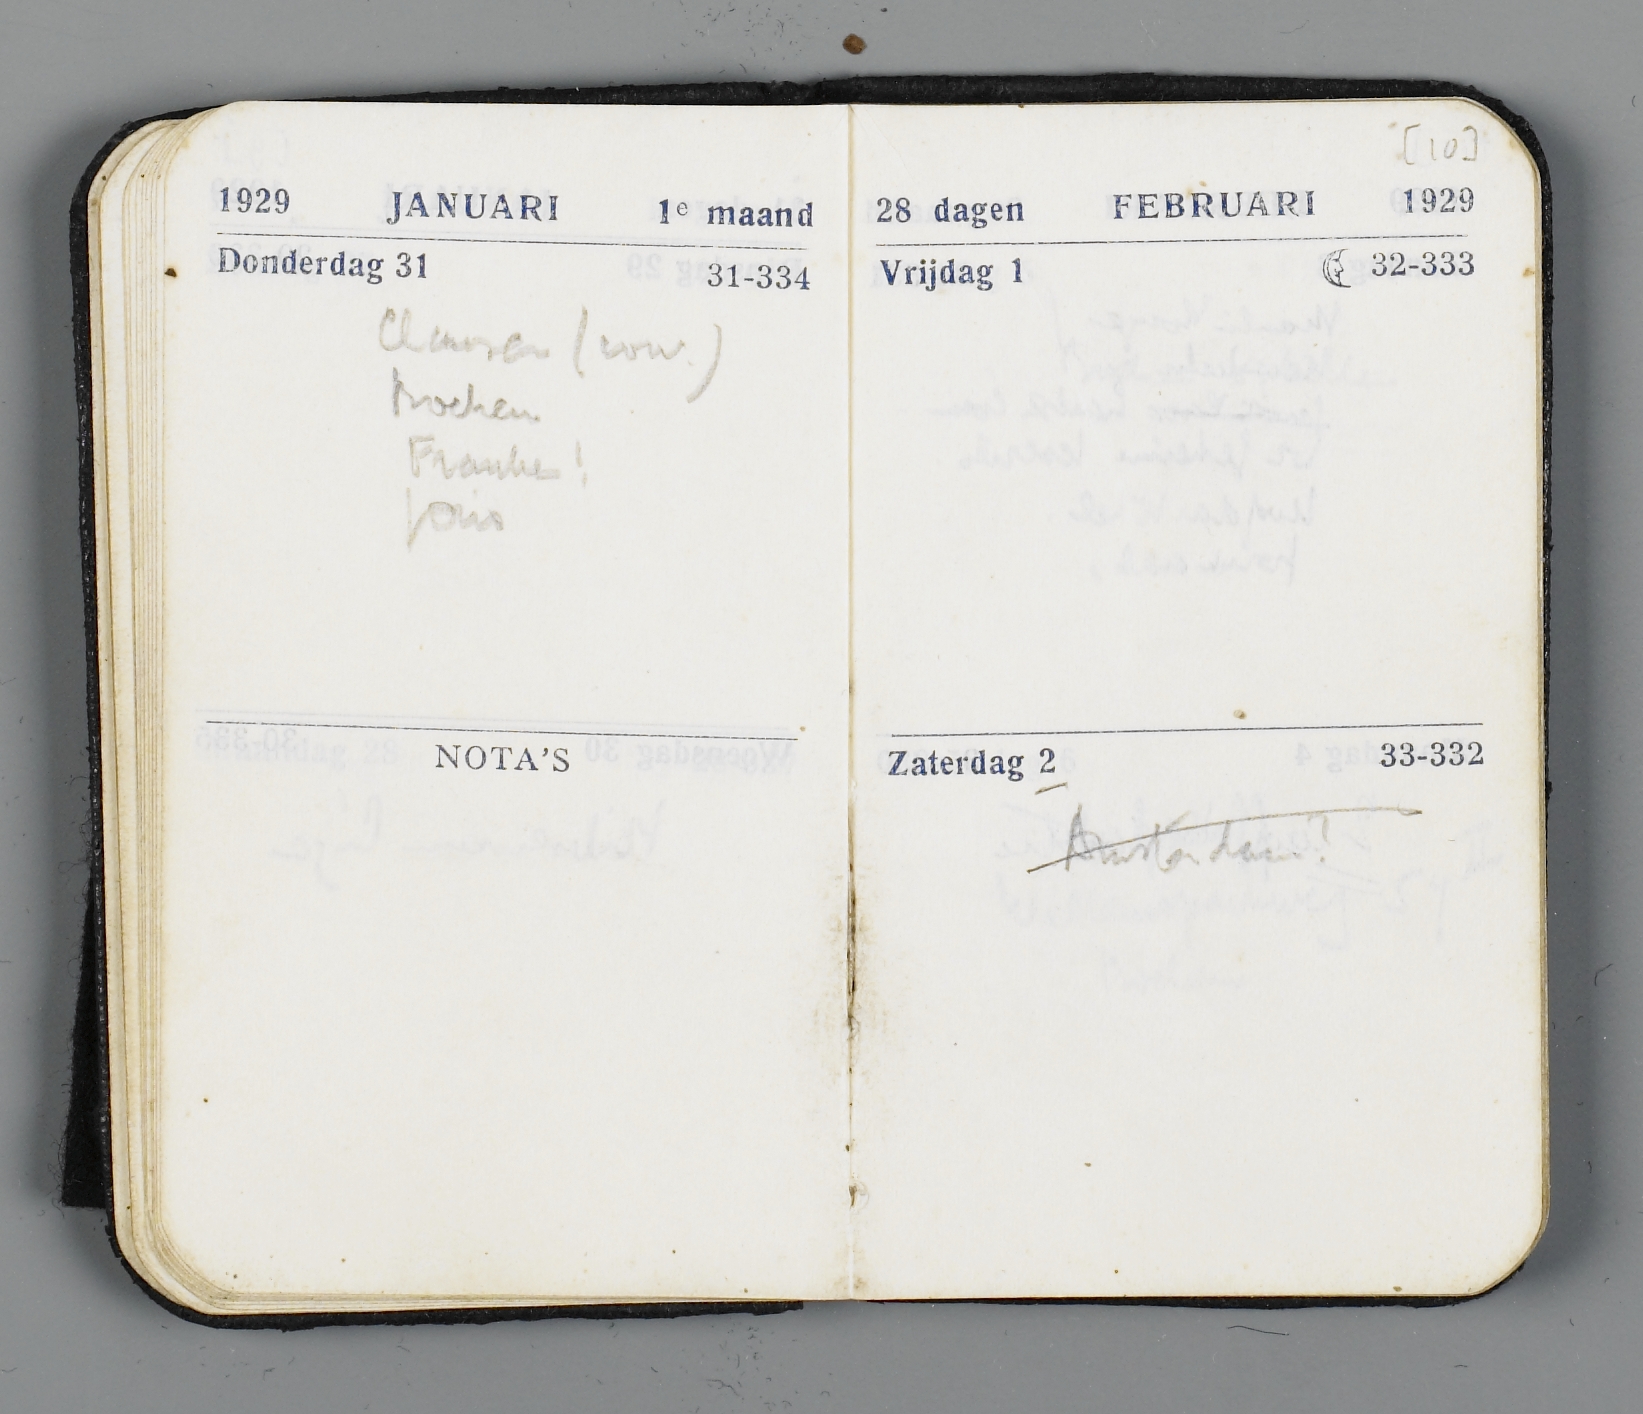 1929 JANUARI 1e maand
Donderdag 31 31-334
Clausen (
Franke!
NOTA'S
[10]
28 dagen FEBRUARI 1929
Vrijdag 1 32-333
Zaterdag 2 33-332
Amsterdam?